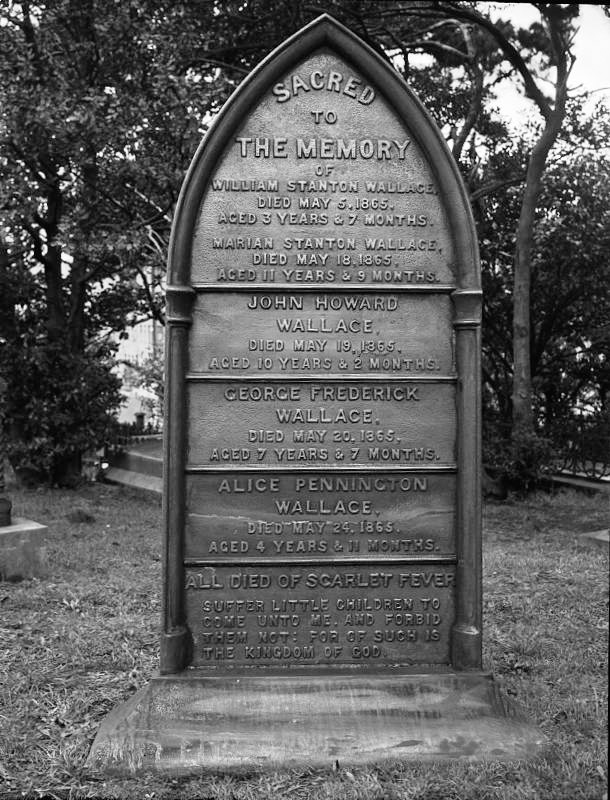 SACRED
TO
THE MEMORY
OF
WILLIAM STANTON WALLACE,
DIED MAY 5, 1865.
AGED 3 YEARS & 7 MONTHS.
MARIAN STANTON WALLACE,
DIED MAY 18, 1865.
AGED 11 YEARS & 9 MONTHS.
JOHN HOWARD
WALLACE,
DIED MAY 19, 1865,
AGED 10 YEARS & 2 MONTHS.
GEORGE FREDERICK
WALLACE,
DIED MAY 20, 1865,
AGED 7 YEARS & 7 MONTHS.
ALICE PENNINGTON
WALLACE,
DIED MAY 24, 1865.
AGED 4 YEARS & 11 MONTHS.
ALL DIED OF SCARLET FEVER
SUFFER LITTLE CHILDREN TO
COME UNTO ME, AND FORBID
THEM NOT: FOR OF SUCH IS
THE KINGDOM OF GOD.